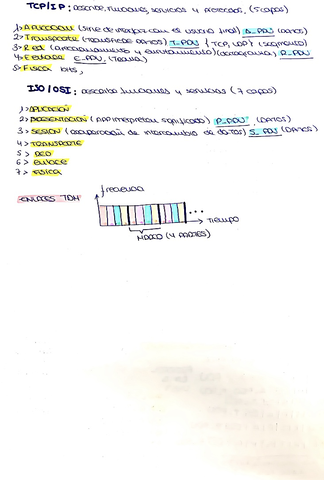 TCP/IP: describe funciones, servicios y protocolos, (5 capas)
1> APLICACIÓN (sirve de interfaz con el usuario final) A_PDU (DATOS)
2> TRANSPORTE (transfiere datos) T_PDU {TCP, UDP} (segmento)
3> RED (direccionamiento y enrutamiento) (datagrama), R_PDU
4> ENLACE E_PDU, (trama)
5> FÍSICA bits,
ISO/OSI: describe funciones y servicios (7 capas)
1> APLICACIÓN
2> PRESENTACIÓN (APP interpretan significado) P_PDU, (DATOS)
3> SESIÓN ( de intercambio de datos) S_PDU (DATOS)
4> TRANSPORTE
5> RED
6> ENLACE
7> FÍSICA
ENLACES TDM
frecuencia
...
TIEMPO
MARCO (4 PARTES)